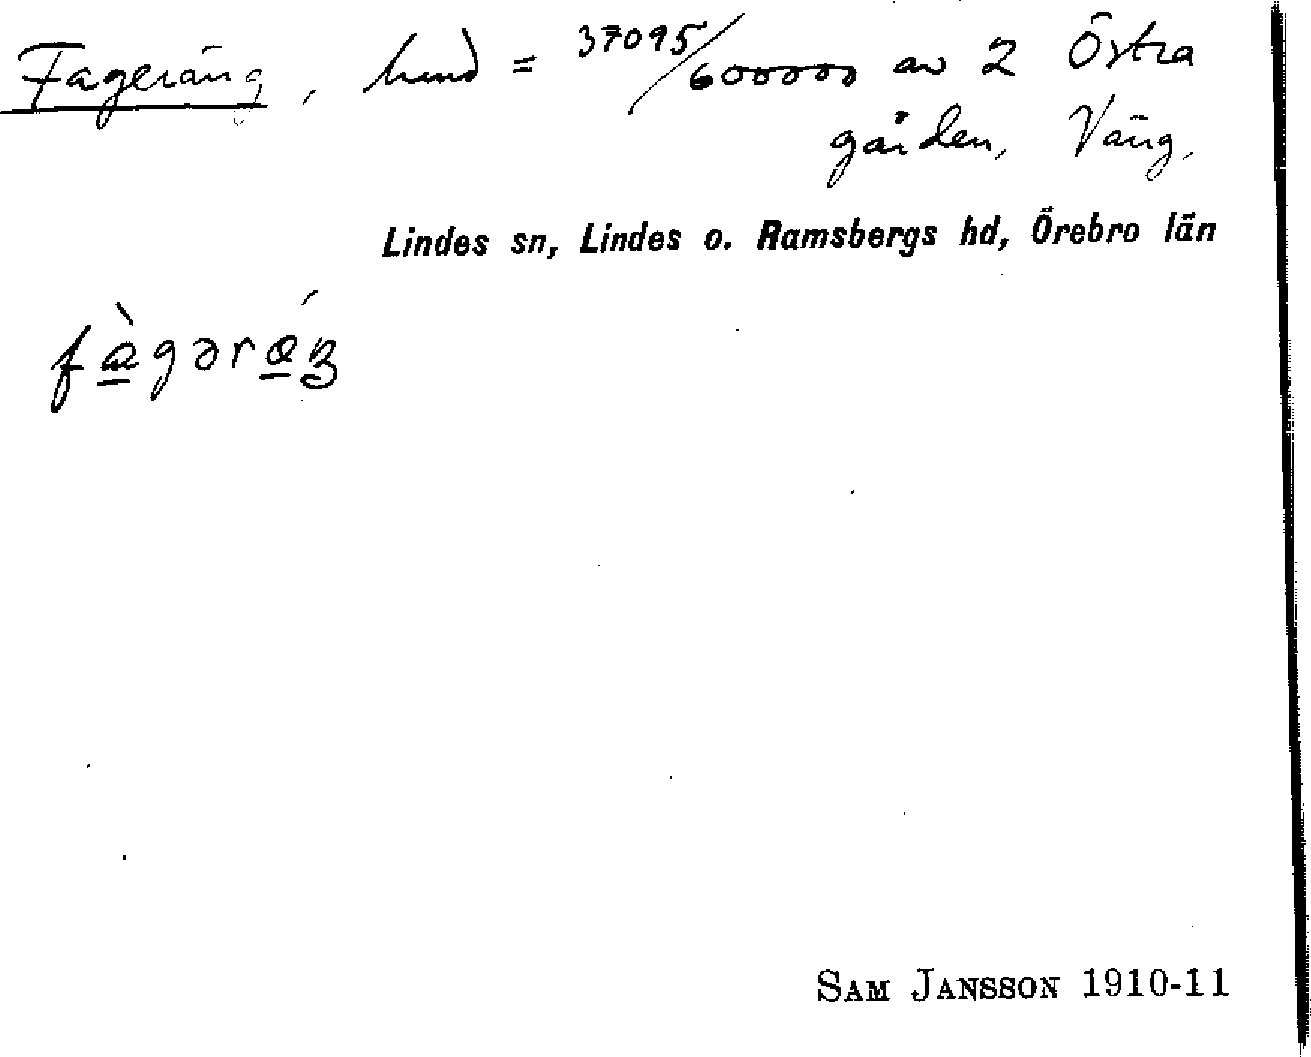 Fageräng, hmd = 37095/600000 av 2 Östra
gården, Väng,
Lindes sn, Lindes o. Ramsbergs hd, Örebro län
SAM JANSSON 1910-11